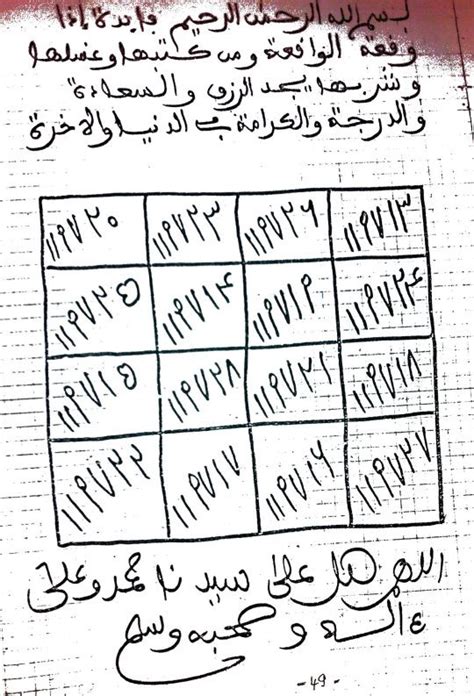 بسم الله الرحمن الرحيم فايدة هاذا
وفقة الواقعة ومن كتبها وغسلها
وشربها يجد الرزق والسعادة
والدرجة والكرامة في الدنيا والاخرة
١١٩٧١٣ ١١٩٧٢٦ ١١٩٧٢٣ ١١٩٧٢٠
١١٩٧٢٤ ١١٩٧١٩ ١١٩٧١٤ ١١٩٧٢٥
١١٩٧١٨ ١١٩٧٢١ ١١٩٧٢٨ ١١٩٧١٥
١١٩٧٢٧ ١١٩٧١٦ ١١٩٧١٧ ١١٩٧٢٢
اللهم صل على سيدنا محمد وعلى
ءاله وصحبه وسلم
- 49 -